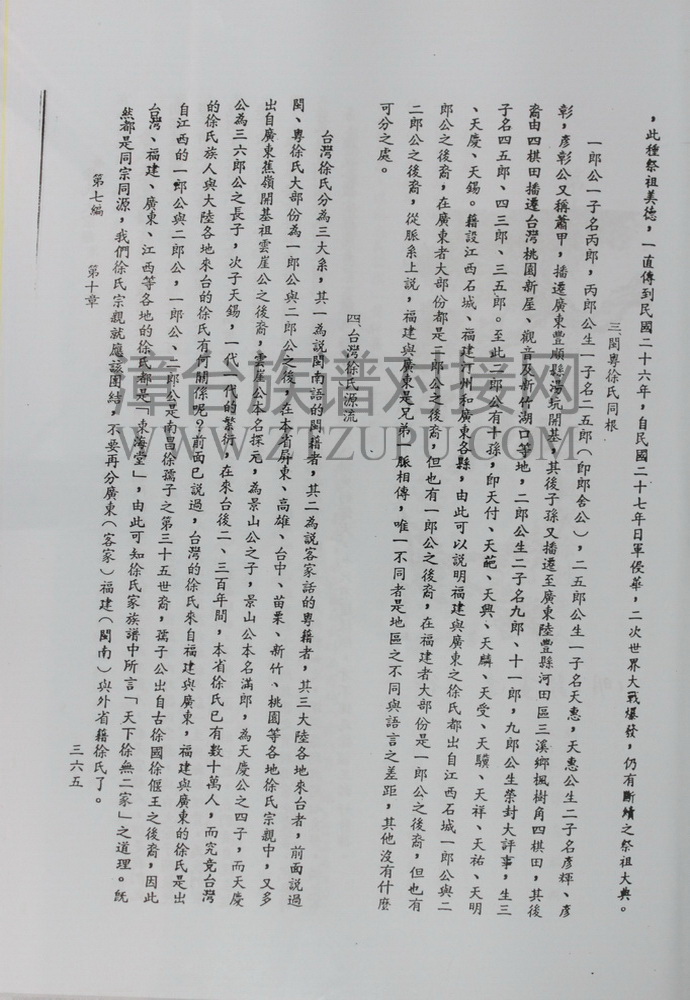 ，此種祭祖美德，一直傳到民國二十六年，自民國二十七年日軍侵華，二次世界大戰爆發，仍有斷續之祭祖大典。
三、閩粵徐氏同根
一郎公一子名丙郎，丙郎公生一子名二五郎（即郎舍公），二五郎公生一子名天惠，天惠公生二子名彥輝、彥
彰，彥彰公又稱蕭甲，播遷廣東豐順縣湯坑開基，其後子孫又播遷至廣東陸豐縣河田區三溪鄉楓樹角四棋田，其後
裔由四棋田播遷台灣桃園新屋、觀音及新竹湖口等地，二郎公生二子名九郎、十一郎，九郎公生榮封大評事，生三
子名四五郎、四三郎、三五郎。至此二郎公有十孫，即天付、天蓜、天興、天麟、天受、天驥、天祥、天祐、天明
、天慶、天錫。籍設江西石城、福建汀州和廣東各縣，由此可以說明福建與廣東之徐氏都出自江西石城一郎公與二
郎公之後裔，在廣東者大部份都是二郎公之後裔，但也有一郎公之後裔，在福建者大部份是一郎公之後裔，但也有
二郎公之後裔，從脈系上說，福建與廣東是兄弟一脈相傳，唯一不同者是地區之不同與語言之差距，其他沒有什麼
可分之處。
四、台灣徐氏源流
台灣徐氏分為三大系，其一為說閩南語的閩籍者，其二為說客家話的粵籍者，其三大陸各地來台者，前面說過
閩、粵徐氏大部份為一郎公與二郎公之後，在本省屏東、高雄、台中、苗栗、新竹、桃園等各地徐氏宗親中，又多
出自廣東蕉嶺開基祖雲崖公之後裔，雲崖公本名探元，為景山公之子，景山公本名滿郎，為天慶公之四子，而天慶
公為三六郎公之長子，次子天錫，一代一代的繁衍，在來台後二、三百年間，本省徐氏已有數十萬人，而究竟台灣
的徐氏族人與大陸各地來台的徐氏有何關係呢？前面已說過，台灣的徐氏來自福建與廣東，福建與廣東的徐氏是出
自江西的一郎公與二郎公，一郎公、二郎公是南昌徐孺子之第三十五世裔，孺子公出自古徐國徐偃王之後裔，因此
台灣、福建、廣東、江西等各地的徐氏都是「東海堂」，由此可知徐氏家族譜中所言「天下徐無二家」之道理。既
然都是同宗同源，我們徐氏宗親就應該團結，不要再分廣東（客家）福建（閩南）與外省籍徐氏了。
第七編　第十章
三六五
章台族谱对接网
WWW.ZTZUPU.COM